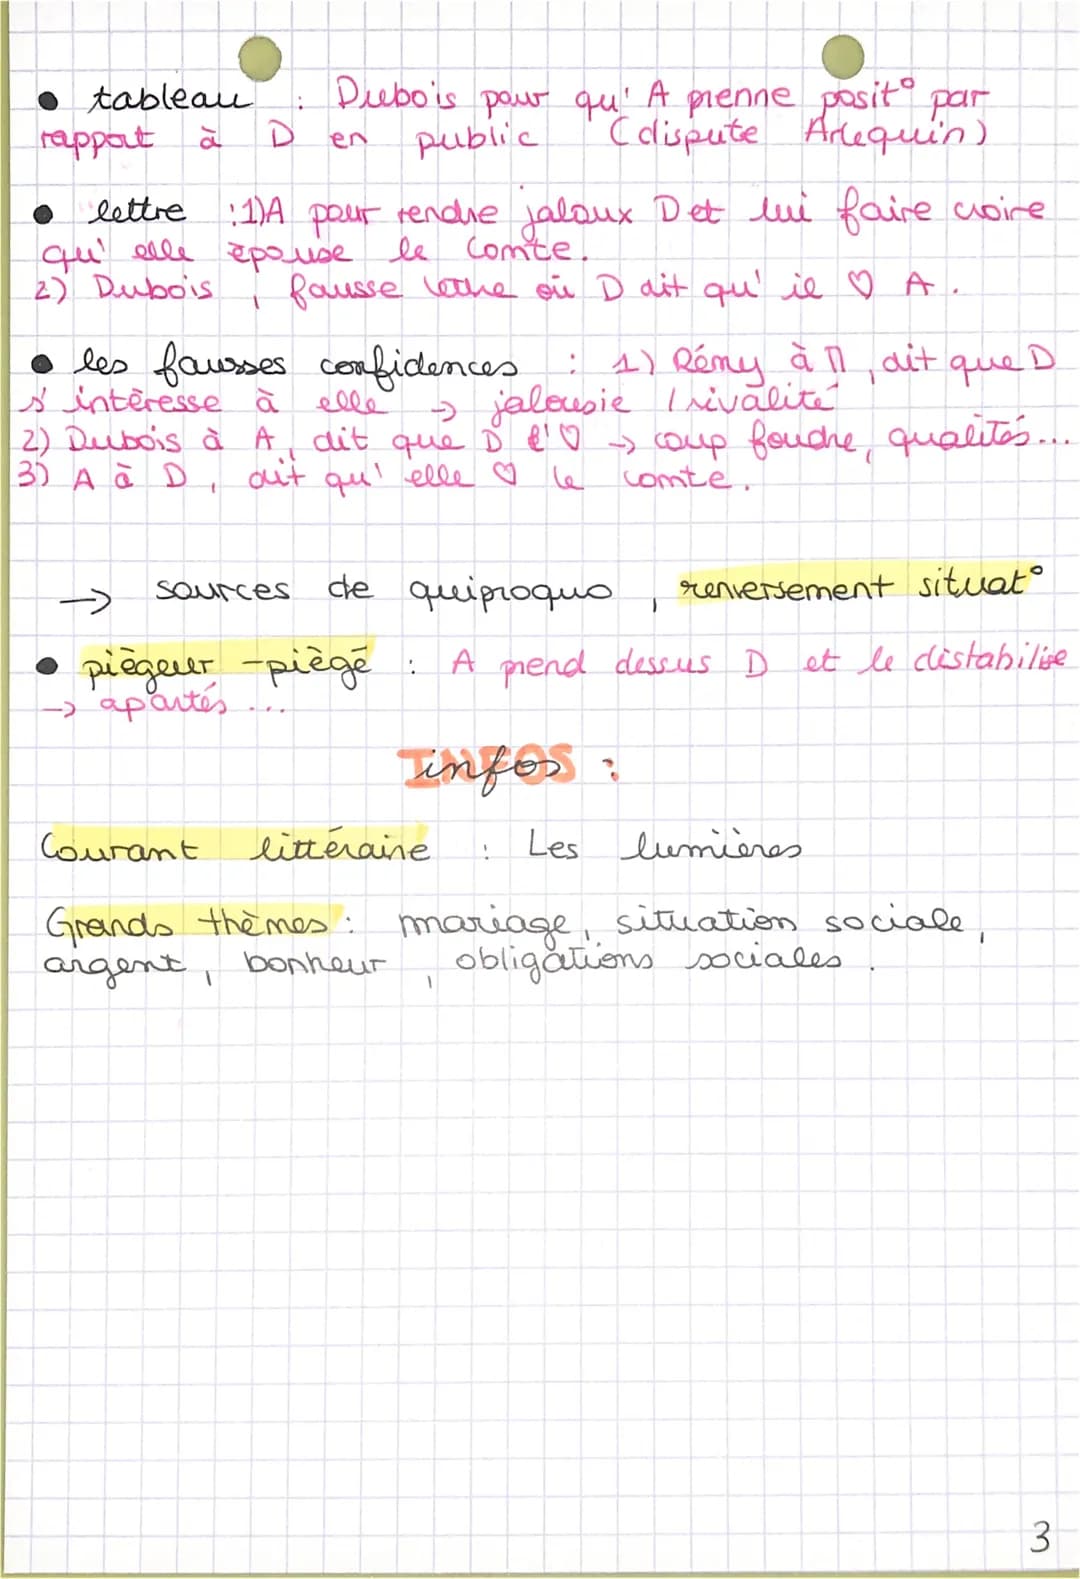 • tableau : Dubois pour qu' A prenne posit° par
rapport à D en public (dispute Arlequin)
• lettre : 1) A pour rendre jaloux D et lui faire croire
qu' elle épouse le Comte.
2) Dubois, fausse lettre où D dit qu' il ♡ A.
• les fausses confidences : 1) Rémy à M, dit que D
s' intéresse à elle → jalousie / rivalité
2) Dubois à A, dit que D l'♡ → coup foudre, qualités...
3) A à D, dit qu' elle ♡ le comte.
→ sources de quiproquo, renversement situat°
• piègeur - piègé : A prend dessus D et le distabilise
→ apartés ...
INFOS infos :
Courant littéraire : Les lumières
Grands thèmes : mariage, situation sociale,
argent, bonheur, obligations sociales.
3